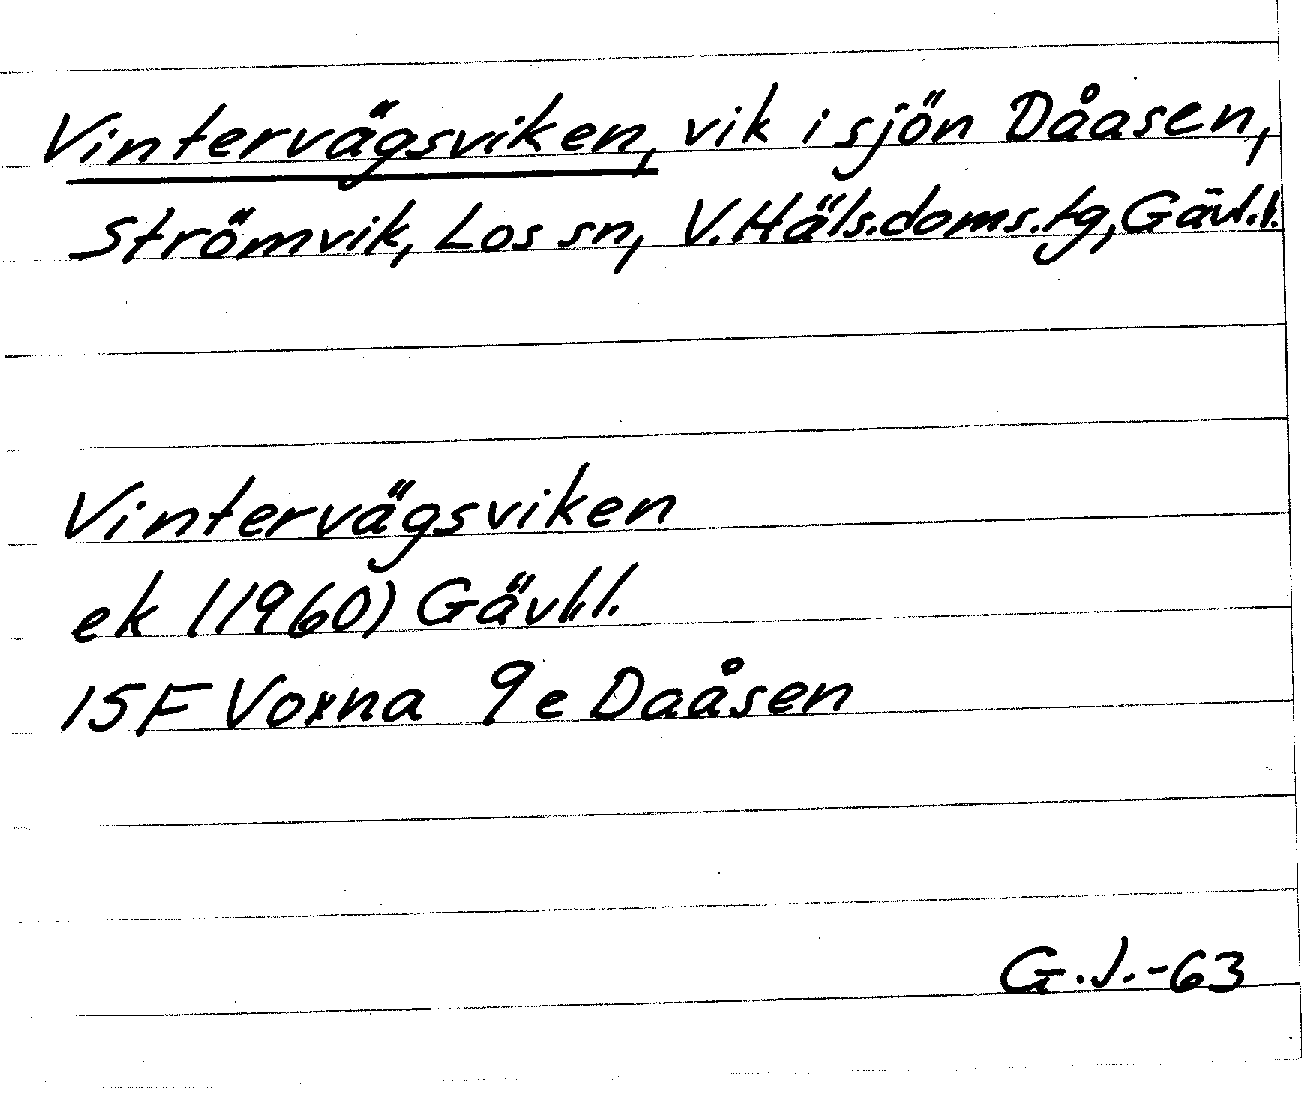 Vintervägsviken, vik i sjön Dåasen,
Strömvik, Los sn, V. Häls. doms. tg, Gävl. l.
Vintervägsviken
ek (1960) Gävl. l.
15F Voxna 9e Daåsen
G.J.-63